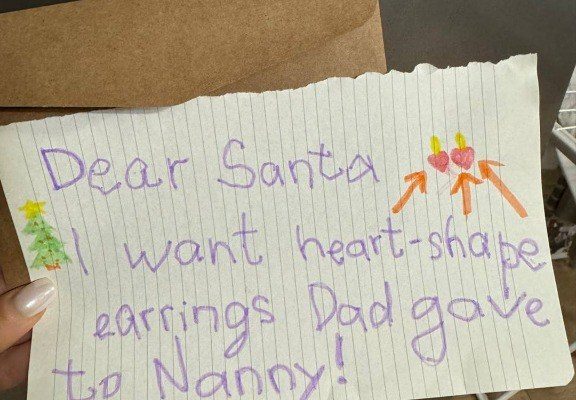 Dear Santa
I want heart-shape
earrings Dad gave
to Nanny!